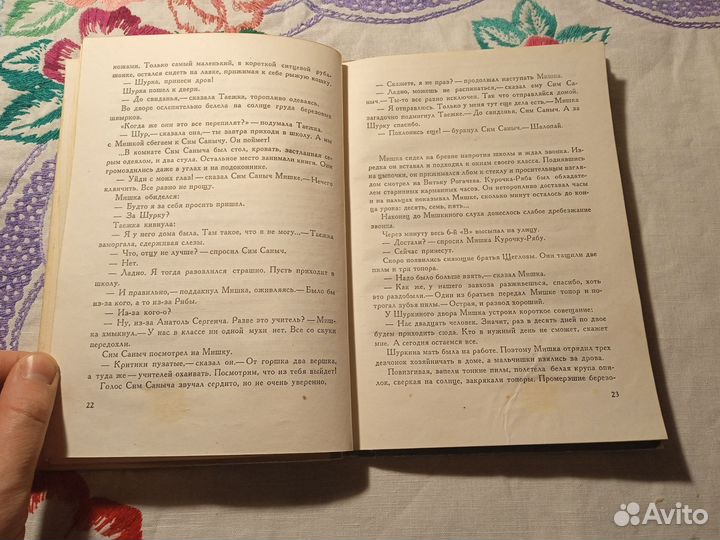 ножами. Только самый маленький, в короткой ситцевой руба-
шонке, остался сидеть на лавке, прижимая к себе рыжую кошку.
— Шурка, принеси дров!
Шурка пошел к двери.
— До свиданья,— сказала Таежка, торопливо одеваясь.
Во дворе ослепительно белела на солнце груда березовых
швырков.
«Когда же они это все перепилят?» — подумала Таежка.
— Шур,— сказала она,— ты завтра приходи в школу. А мы
с Мишкой сбегаем к Сим Санычу. Он поймет!
...В комнате Сим Саныча был стол, кровать, застланная се-
рым одеялом, и два стула. Остальное место занимали книги. Они
громоздились даже в углах и на подоконнике.
— Уйди с моих глаз! — сказал Сим Саныч Мишке.— Нечего
клянчить. Все равно не прощу.
Мишка обиделся:
— Будто я за себя просить пришел.
— За Шурку?
Таежка кивнула:
— Я у него дома была. Там такое, что я не могу...— Таежка
заморгала, сдерживая слезы.
— Что, отцу не лучше? — спросил Сим Саныч.
— Нет.
— Ладно. Я тогда разозлился страшно. Пусть приходит в
школу.
— И правильно,— поддакнул Мишка, оживляясь.— Было бы
из-за кого, а то из-за Рябы.
— Из-за кого?
— Ну, из-за Анатоль Сергеича. Разве это учитель? — Миш-
ка хмыкнул.— У нас в классе ни одной мухи нет. Все со скуки
передохли.
Сим Саныч посмотрел на Мишку.
— Критики пузатые,— сказал он.— От горшка два вершка,
а туда же — учителей охаивать. Посмотрим, что из тебя выйдет!
Голос Сим Саныча звучал сердито, но не очень уверенно,
22
— Скажете, я не прав? — продолжал наступать Мишка.
— Ладно, можешь не распинаться,— сказал ему Сим Са-
ныч.— Ты-то все равно исключен. Так что отправляйся домой.
— Я отправлюсь. Только у меня тут еще дела есть.— Мишка
загадочно подмигнул Таежке.— До свиданья, Сим Саныч. А за
Шурку спасибо.
— Поклонись еще! — буркнул Сим Саныч.— Шалопай.
Мишка сидел на бревне напротив школы и ждал звонка. Из-
редка он вставал и подходил к окнам своего класса. Поднявшись
на цыпочки, он прижимался лбом к стеклу и просительным взгля-
дом смотрел на Витьку Рогачева. Курочка-Ряба был обладате-
лем старинных карманных часов. Он неторопливо доставал часы
и на пальцах показывал Мишке, сколько минут осталось до кон-
ца урока: десять, семь, пять...
Наконец до Мишкиного слуха донеслось слабое дребезжание
звонка.
Через минуту весь 6-й «В» высыпал на улицу.
— Достали? — спросил Мишка Курочку-Рябу.
— Сейчас принесут.
Скоро появились сияющие братья Щегловы. Они тащили две
пилы и три топора.
— Надо было больше взять,— сказал Мишка.
— Как же, у нашего завхоза разживешься, спасибо, хоть это
раздобыли.— Один из братьев передал Мишке топор и потро-
гал зубья пилы.— Острая, и развод хороший.
У Шуркиного двора Мишка устроил короткое совещание:
— Нас двадцать человек. Значит, раз в десять дней по двое
будем приходить сюда. Кто в нужный день не сможет, скажет
мне. А сегодня останемся все.
Шуркина мать была на работе. Поэтому Мишка отрядил трех
девчонок хозяйничать в дом, а мальчишки взялись за дрова.
Повизгивая, запели тонкие пилы, полетела белая крупа опи-
лок, сверкая на солнце, закрякали топоры. Промерзшие березо-
23
Avito